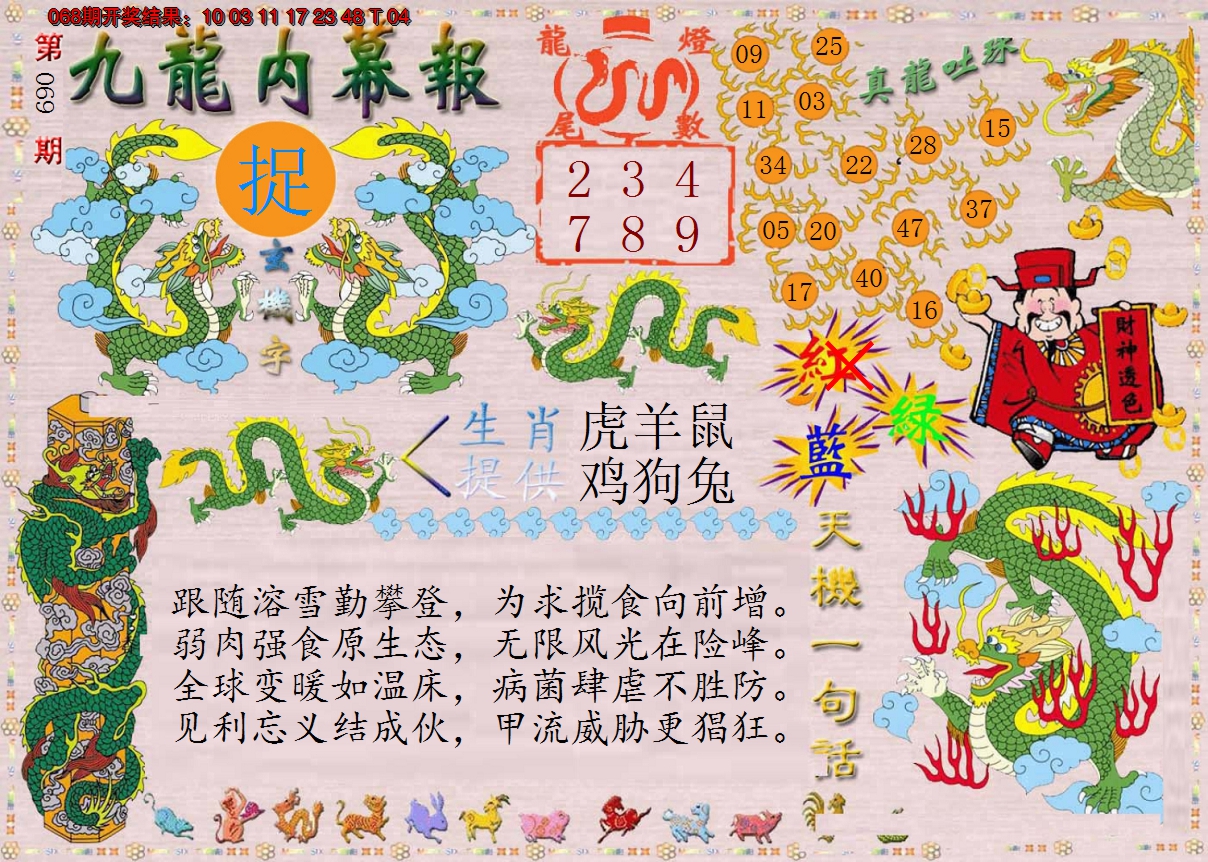 068期开奖结果：10 03 11 17 23 48 T 04
第
069
期
九龍内幕報
捉
玄
機
字
龍 燈
尾 數
2 3 4
7 8 9
真龍吐珠
09 25
11 03
28 15
34 22
37
05 20 47
40
17 16
財神透色
紅
綠
藍
生肖 虎羊鼠
提供 鸡狗兔
天機一句話
跟随溶雪勤攀登，为求揽食向前增。
弱肉强食原生态，无限风光在险峰。
全球变暖如温床，病菌肆虐不胜防。
见利忘义结成伙，甲流威胁更猖狂。